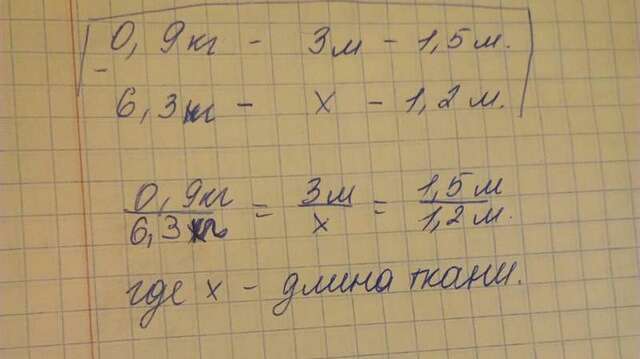 0,9кг - 3м - 1,5м.
6,3кг - х - 1,2м.
0,9кг/6,3кг = 3м/х = 1,5м/1,2м.
где х - длина ткани.